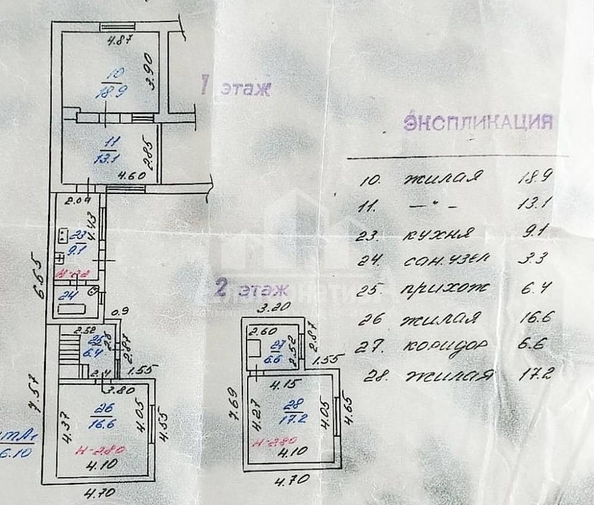 4.87
10
18.9
3.90
1 этаж
ЭКСПЛИКАЦИЯ
11
13.1
2.85
4.60
10. жилая 18.9
11. —"— 13.1
23. кухня 9.1
24. сан.узел 3.3
25 прихож 6.4
26 жилая 16.6
27. коридор 6.6
28. жилая 17.2
2.04
4.43
23
9.1
6.65
24
0.9
2 этаж
3.20
2.52
25
6.4
2.87
1.55
2.4
3.80
7.57
4.37
26
16.6
4.05
4.55
H-280
4.10
4.70
6.10
2.60
27
6.6
2.52
2.87
1.55
4.15
7.69
4.27
28
17.2
4.05
4.65
H-280
4.10
4.70